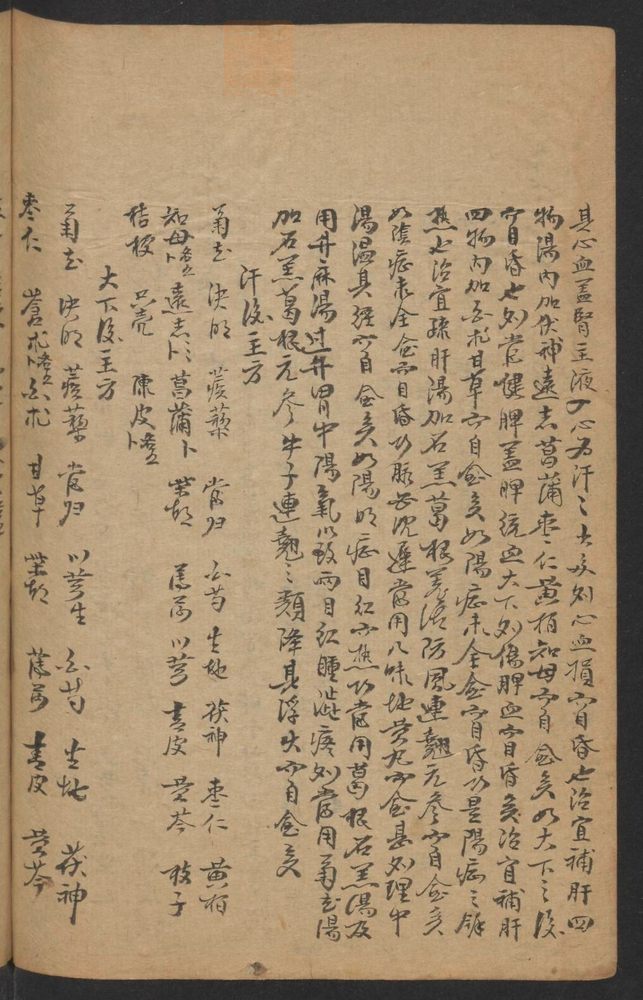 其心血蓋腎主液入心為汗汗大多則心血損而目昏也治宜補肝四
物湯內加茯神遠志菖蒲棗仁黃栢知母而自愈矣如大下之後
而目昏也則當健脾蓋脾統血大下則傷脾血而目昏矣治宜補肝
四物內加白朮甘草而自愈矣如陽症未全愈而目昏乃是陽症之餘
熱也治宜疎肝湯加石羔葛根羗活防風連翹元參而自愈矣
如陰症未全愈而目昏乃脈必沉遲當用八味地黃丸不愈甚則理中
湯溫其經而自愈矣如陽明症目紅而熱乃當用葛根石羔湯及
用升麻湯過升胃中陽氣以致兩目紅腫澁疼則當用菊花湯
加石羔葛根元參牛子連翹之類降其浮火而自愈矣
汗後主方
菊花 決明 蒺藜 當归 白芍 生地 茯神 棗仁 黃栢
知母 遠志 菖蒲 柴胡 川芎 青皮 黃芩 枝子
桔梗 只壳 陳皮
大下後主方
菊花 決明 蒺藜 當归 川芎 白芍 生地 茯神
棗仁 蒼朮 白朮 甘草 柴胡 青皮 黃芩